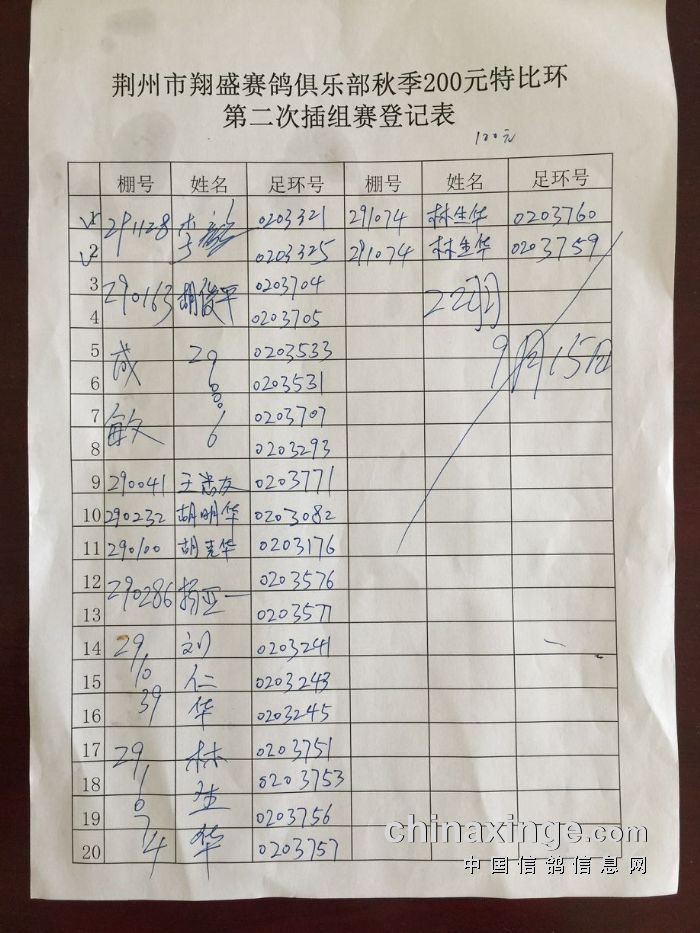 荆州市翔盛赛鸽俱乐部秋季200元特比环
第二次插组赛登记表
100元
棚号 姓名 足环号 棚号 姓名 足环号
1 291128 李 0203321 291074 林生华 0203760
2 0203325 291074 林生华 0203759
3 290163 胡俊平 0203704
4 0203705 22羽
5 成 29 0203533 9月15日
6 0203531
7 敏 0203707
8 6 0203293
9 290041 王 友 0203771
10 290232 胡明华 0203082
11 290100 胡克华 0203176
12 290286 杨亚一 0203576
13 0203577
14 29 刘 0203241
15 10 仁 0203243
16 39 华 0203245
17 29 林 0203751
18 1 生 0203753
19 0 0203756
20 74 华 0203757
chinaxinge.com
中国信鸽信息网